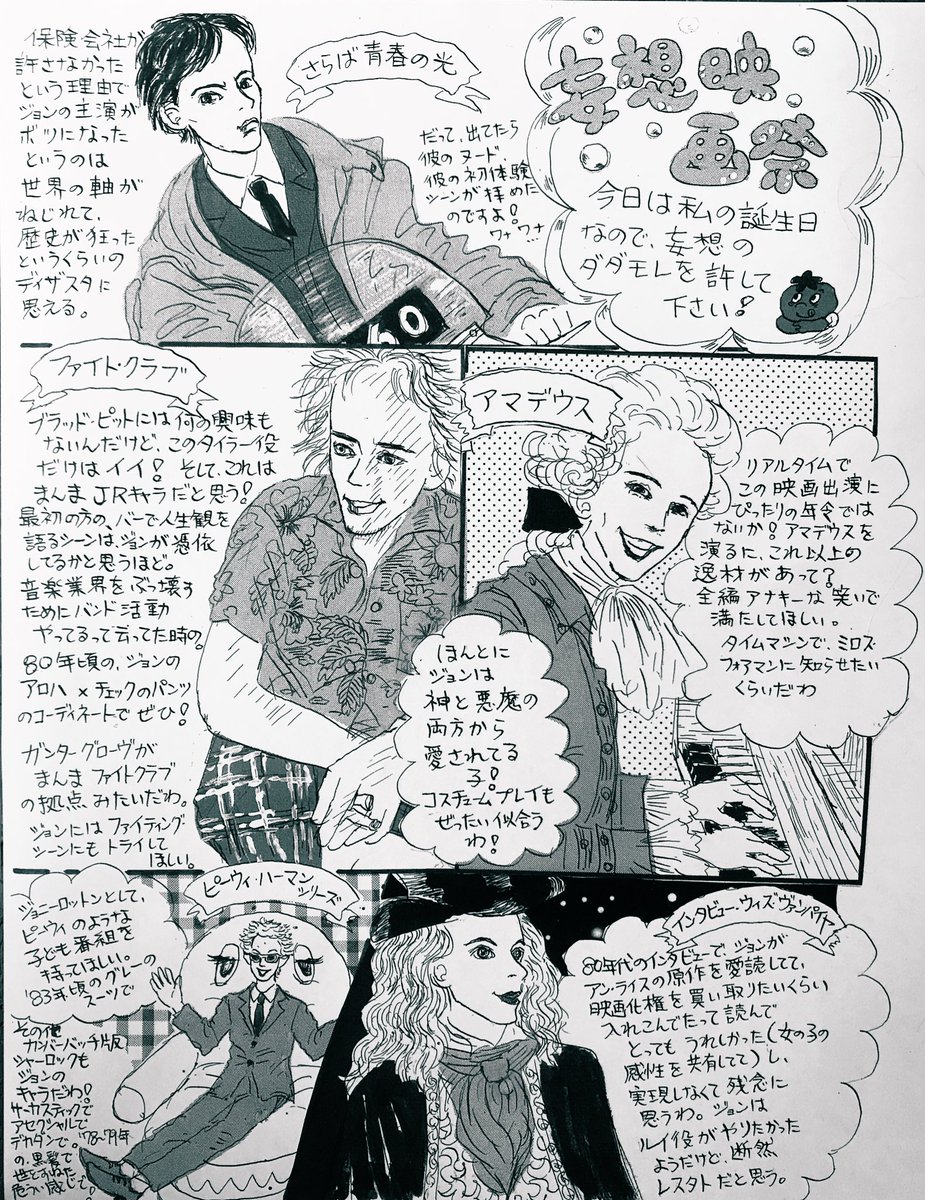 妄想映
画祭
今日は私の誕生日
なので、妄想の
ダダモレを許して
下さい!
さらば青春の光
保険会社が
許さなかった
という理由で
ジョンの主演が
ボツになった
というのは
世界の軸が
ねじれて、
歴史が狂った
というくらいの
ディザスタに
思える。
だって、出てたら
彼のヌード、
彼の初体験
シーンが拝めた
のですよ!
ワナワナ
60
ファイト・クラブ
ブラッド・ピットには何の興味も
ないんだけど、このタイラー役
だけはイイ! そして、これは
まんまJRキャラだと思う!
最初の方の、バーで人生観を
語るシーンは、ジョンが憑依
してるかと思うほど。
音楽業界をぶっ壊す
ためにバンド活動
やってるって云ってた時の。
80年頃の、ジョンの
アロハ×チェックのパンツ
のコーディネートでぜひ!
ガンターグローヴが
まんまファイトクラブ
の拠点みたいだわ。
ジョンにはファイティング
シーンにもトライして
ほしい。
アマデウス
リアルタイムで
この映画出演に
ぴったりの年令では
ないか! アマデウスを
演るに、これ以上の
逸材があって?
全編アナキーな笑いで
満たしてほしい。
タイムマシンで、ミロス・
フォアマンに知らせたい
くらいだわ
ほんとに
ジョンは
神と悪魔の
両方から
愛されてる
子!
コスチュームプレイも
ぜったい似合う
わ!
ピーウィ・ハーマン
シリーズ
ジョニーロットンとして、
ピーウィのような
子ども番組を
持ってほしい。
'83年頃のグレーの
スーツで
その他
カンバーバッチ版
シャーロックも
ジョンの
キャラだわ!
サーカスティックで
アセクシャルで
デカダンで。'78~'79年
の、黒髪で
世をすねた
危うい感じで。
インタビュー・ウィズ・ヴァンパイヤ
80年代のインタビューで、ジョンが
アン・ライスの原作を愛読してて、
映画化権を買い取りたいくらい
入れこんでたって読んで
とってもうれしかった(女の子の
感性を共有してて)し、
実現しなくて残念に
思うわ。ジョンは
ルイ役がやりたかった
ようだけど、断然
レスタトだと思う。